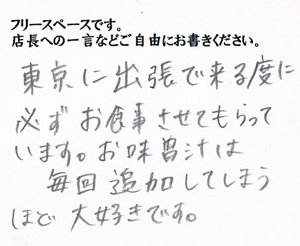 フリースペースです。
店長への一言などご自由にお書きください。
東京に出張で来る度に
必ずお食事させてもらって
います。お味噌汁は
毎回追加してしまう
ほど大好きです。